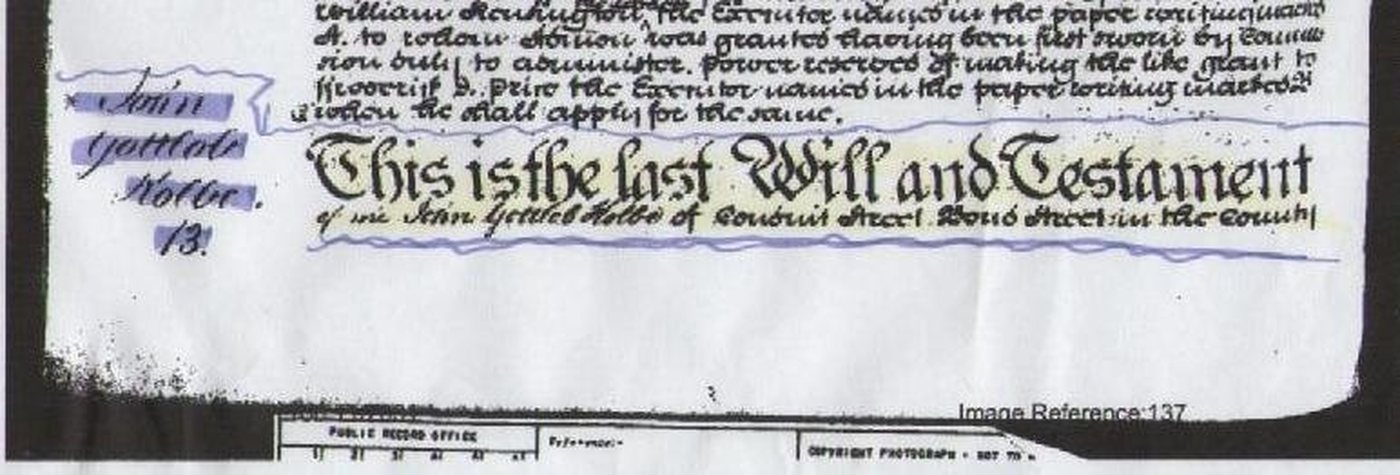 William Kensington, the Executor named in the paper writing marked
A. to whom Admon was granted having been first sworn by Commis
sion duly to administer. Power reserved of making the like grant to
Frederick D. Price the Executor named in the paper writing marked
when he shall apply for the same.
John
Gottlob
Kolbe.
13.
This is the last Will and Testament
of me John Gottlob Kolbe of Conduit Street Bond Street in the County
Image Reference:137
PUBLIC RECORD OFFICE
Reference:-
COPYRIGHT PHOTOGRAPH - NOT TO